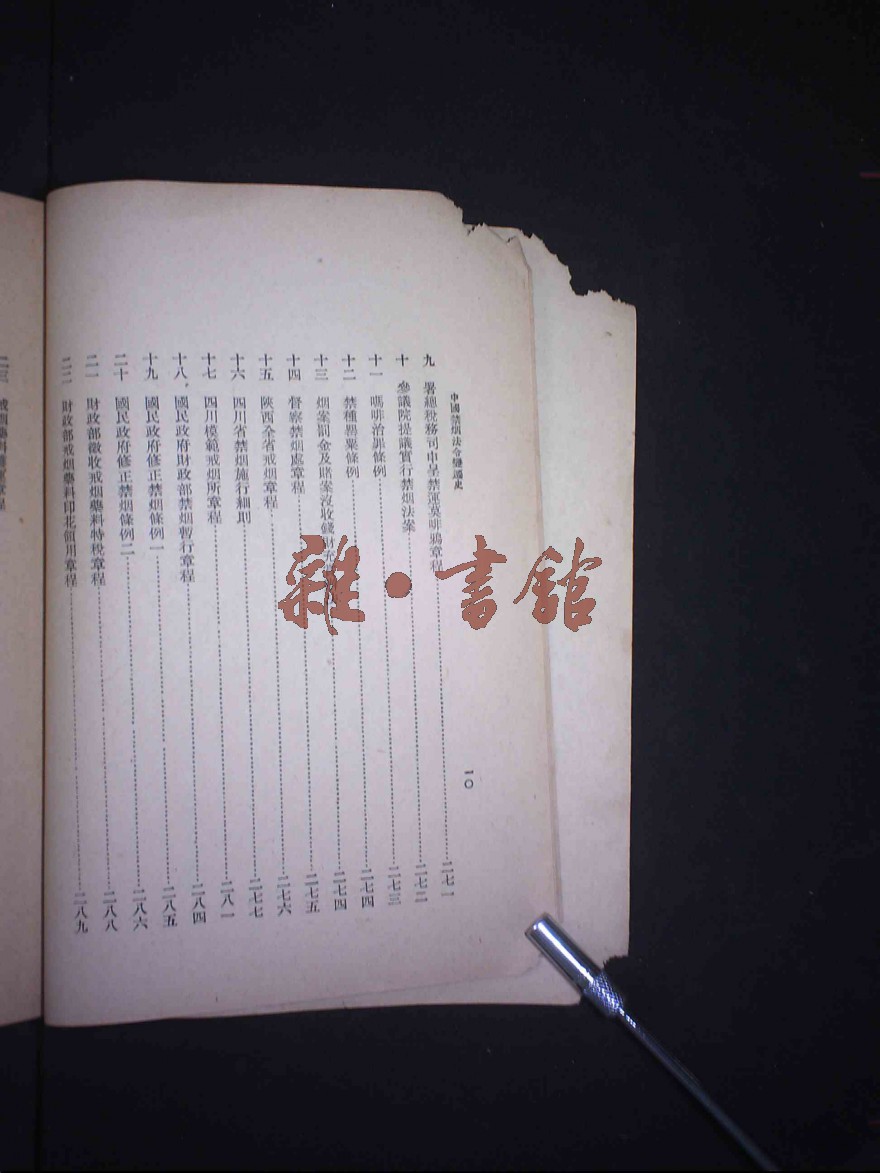 中國禁烟法令變遷史
一〇
九 署總稅務司申呈禁運莫啡鴉章程 二七一
十 參議院提議實行禁烟法案 二七二
十一 嗎啡治罪條例 二七三
十二 禁種罌粟條例 二七四
十三 烟案罰金及賭案沒收錢財充 二七四
十四 督察禁烟處章程 二七五
十五 陝西全省戒烟章程 二七六
十六 四川省禁烟施行細則 二七七
十七 四川模範戒烟所章程 二八一
十八 國民政府財政部禁烟暫行章程 二八四
十九 國民政府修正禁烟條例一 二八五
二十 國民政府修正禁烟條例二 二八六
二一 財政部徵收戒烟藥料特稅章程 二八八
二二 財政部戒烟藥料印花領用章程 二八九
二三
雜·書館